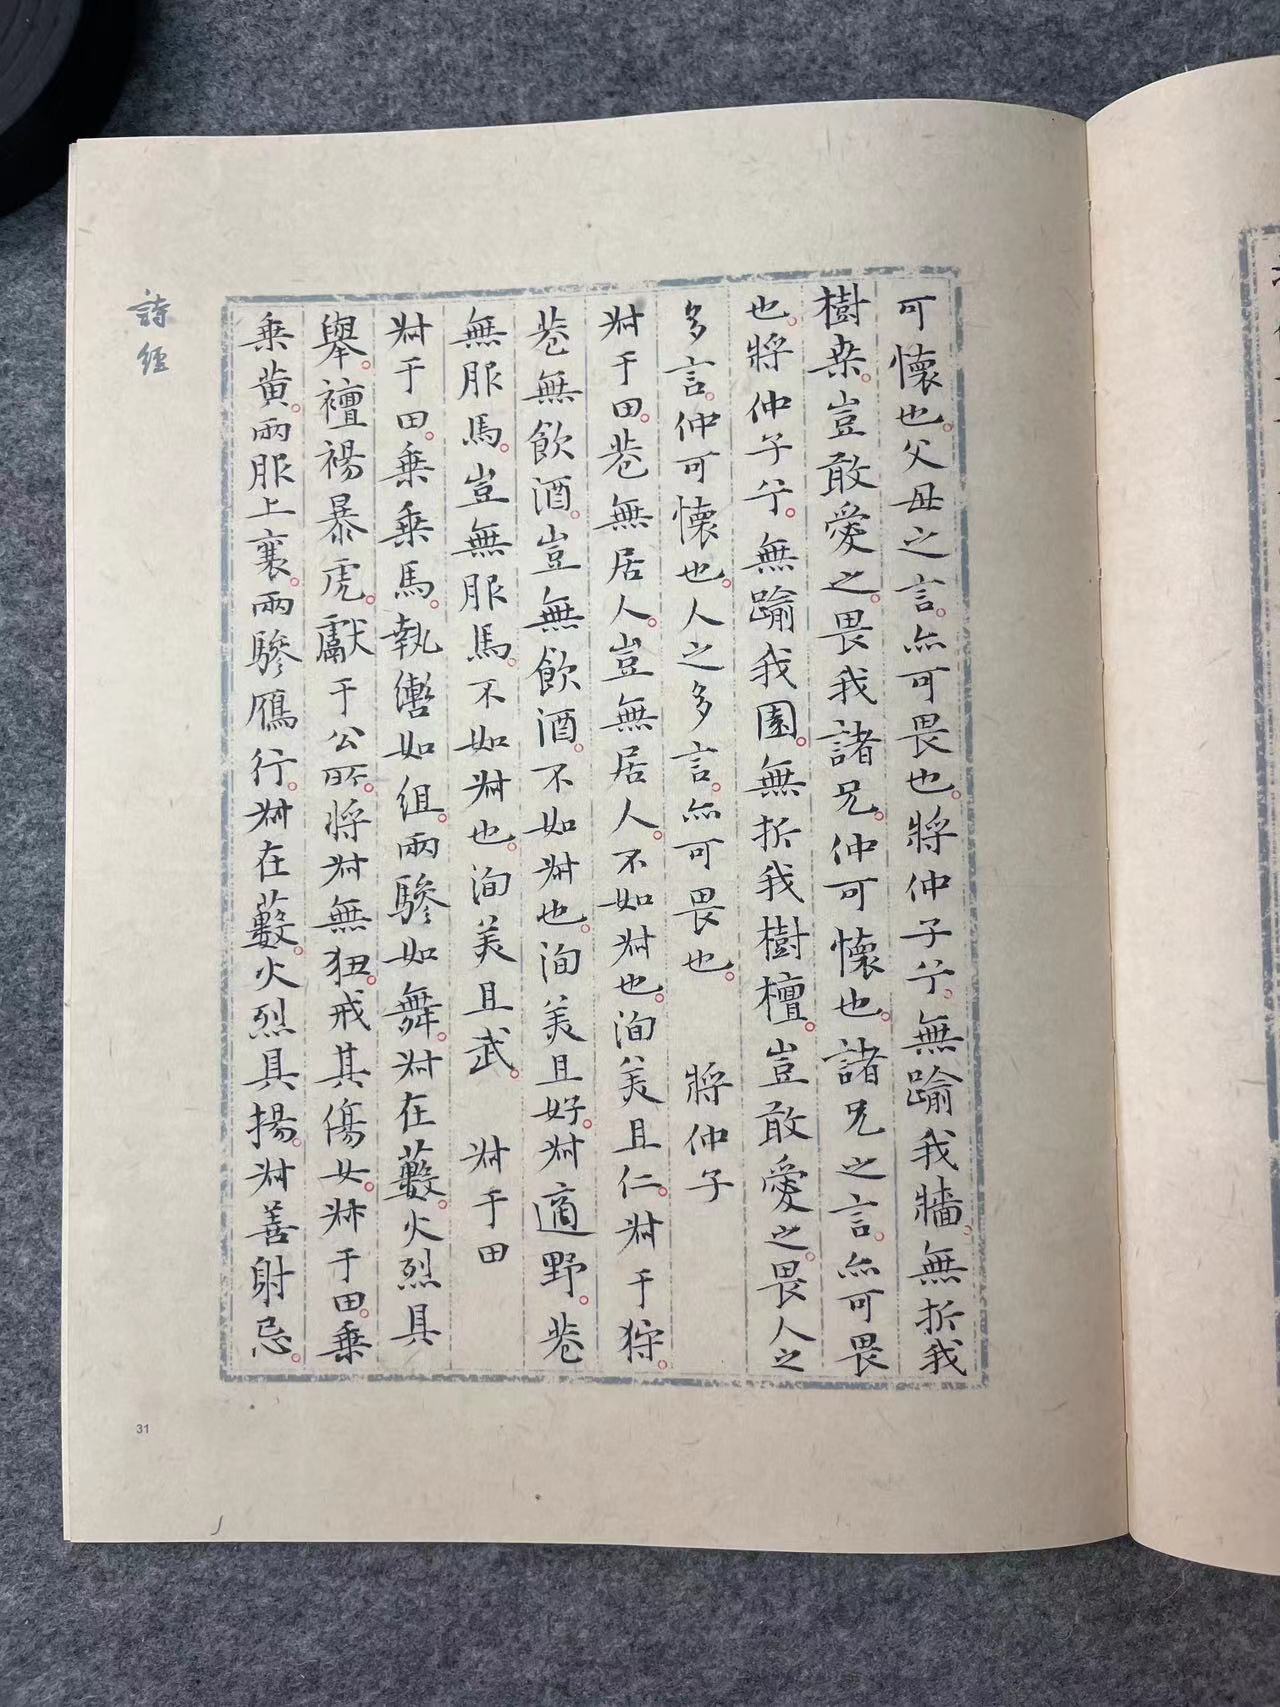 可懷也。父母之言。亦可畏也。將仲子兮。無踰我牆。無折我
樹桒。豈敢愛之。畏我諸兄。仲可懷也。諸兄之言。亦可畏
也。將仲子兮。無踰我園。無折我樹檀。豈敢愛之。畏人之
多言。仲可懷也。人之多言。亦可畏也。 將仲子
叔于田。巷無居人。豈無居人。不如叔也。洵美且仁。叔于狩。
巷無飲酒。豈無飲酒。不如叔也。洵美且好。叔適野。巷
無服馬。豈無服馬。不如叔也。洵美且武。 叔于田
叔于田。乗乗馬。執轡如組。兩驂如舞。叔在藪。火烈具
舉。襢裼暴虎。獻于公所。將叔無狃。戒其傷女。叔于田。乗
乗黃。兩服上襄。兩驂鴈行。叔在藪。火烈具揚。叔善射忌。
詩經
31